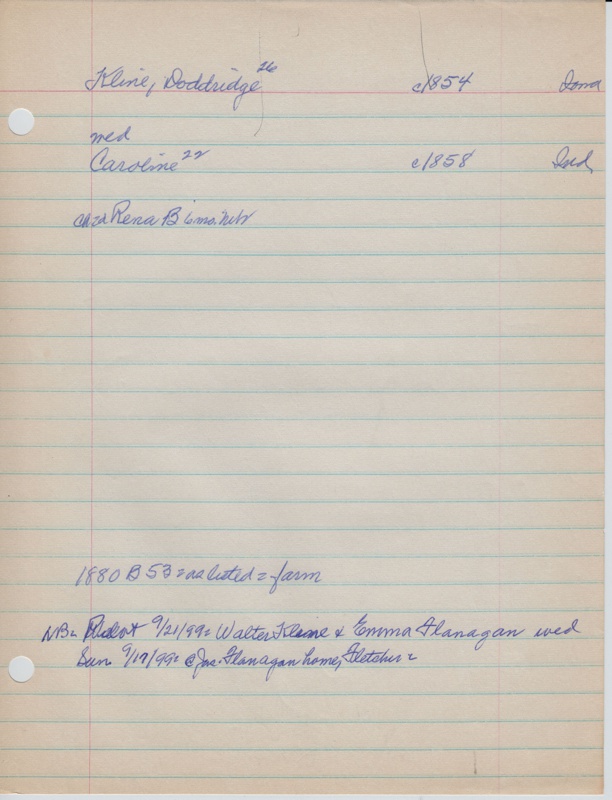 Kline, Doddridge 26 c1854 Iowa
wed
Caroline 22 c1858 Ind
Rena B 6 mo. Neb
1880 B 53 = as listed = farm
NB = 9/21/99 = Walter Kline & Emma Flanagan wed
Sun 9/17/99 = @ Jas. Flanagan home, Fletcher =